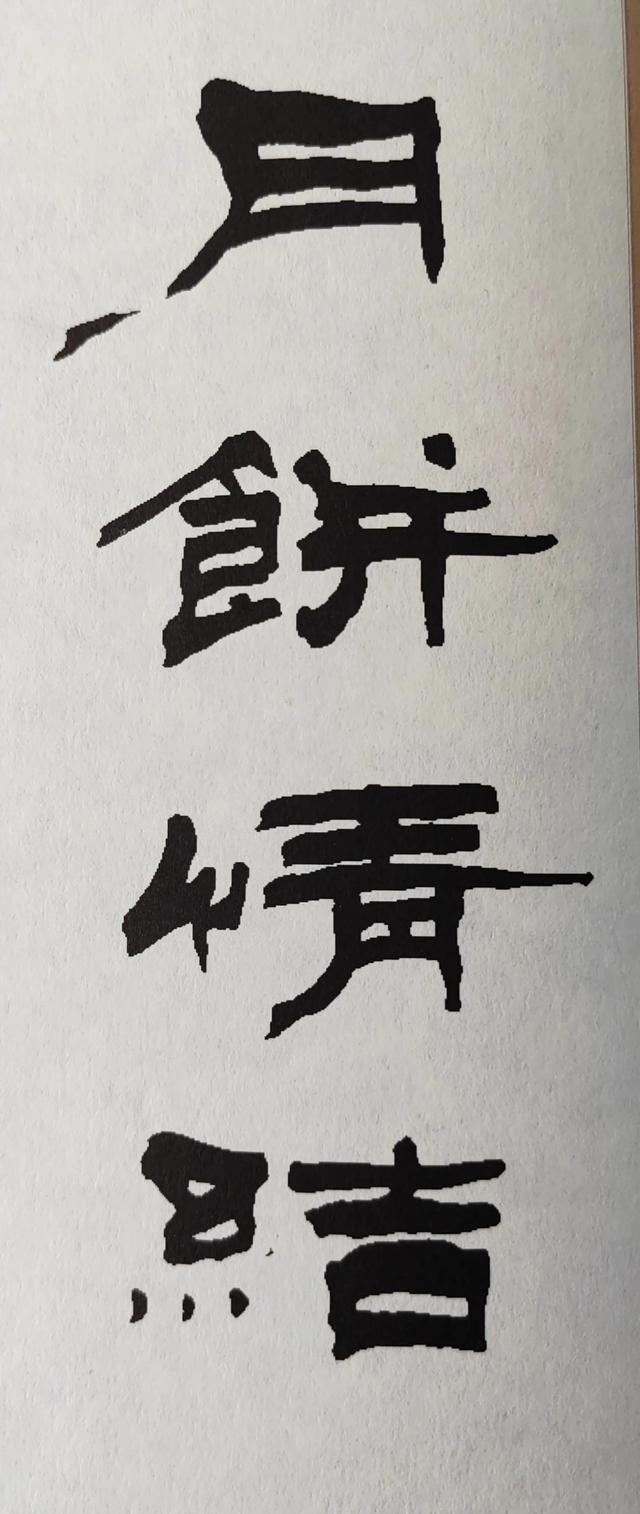 月餅情結